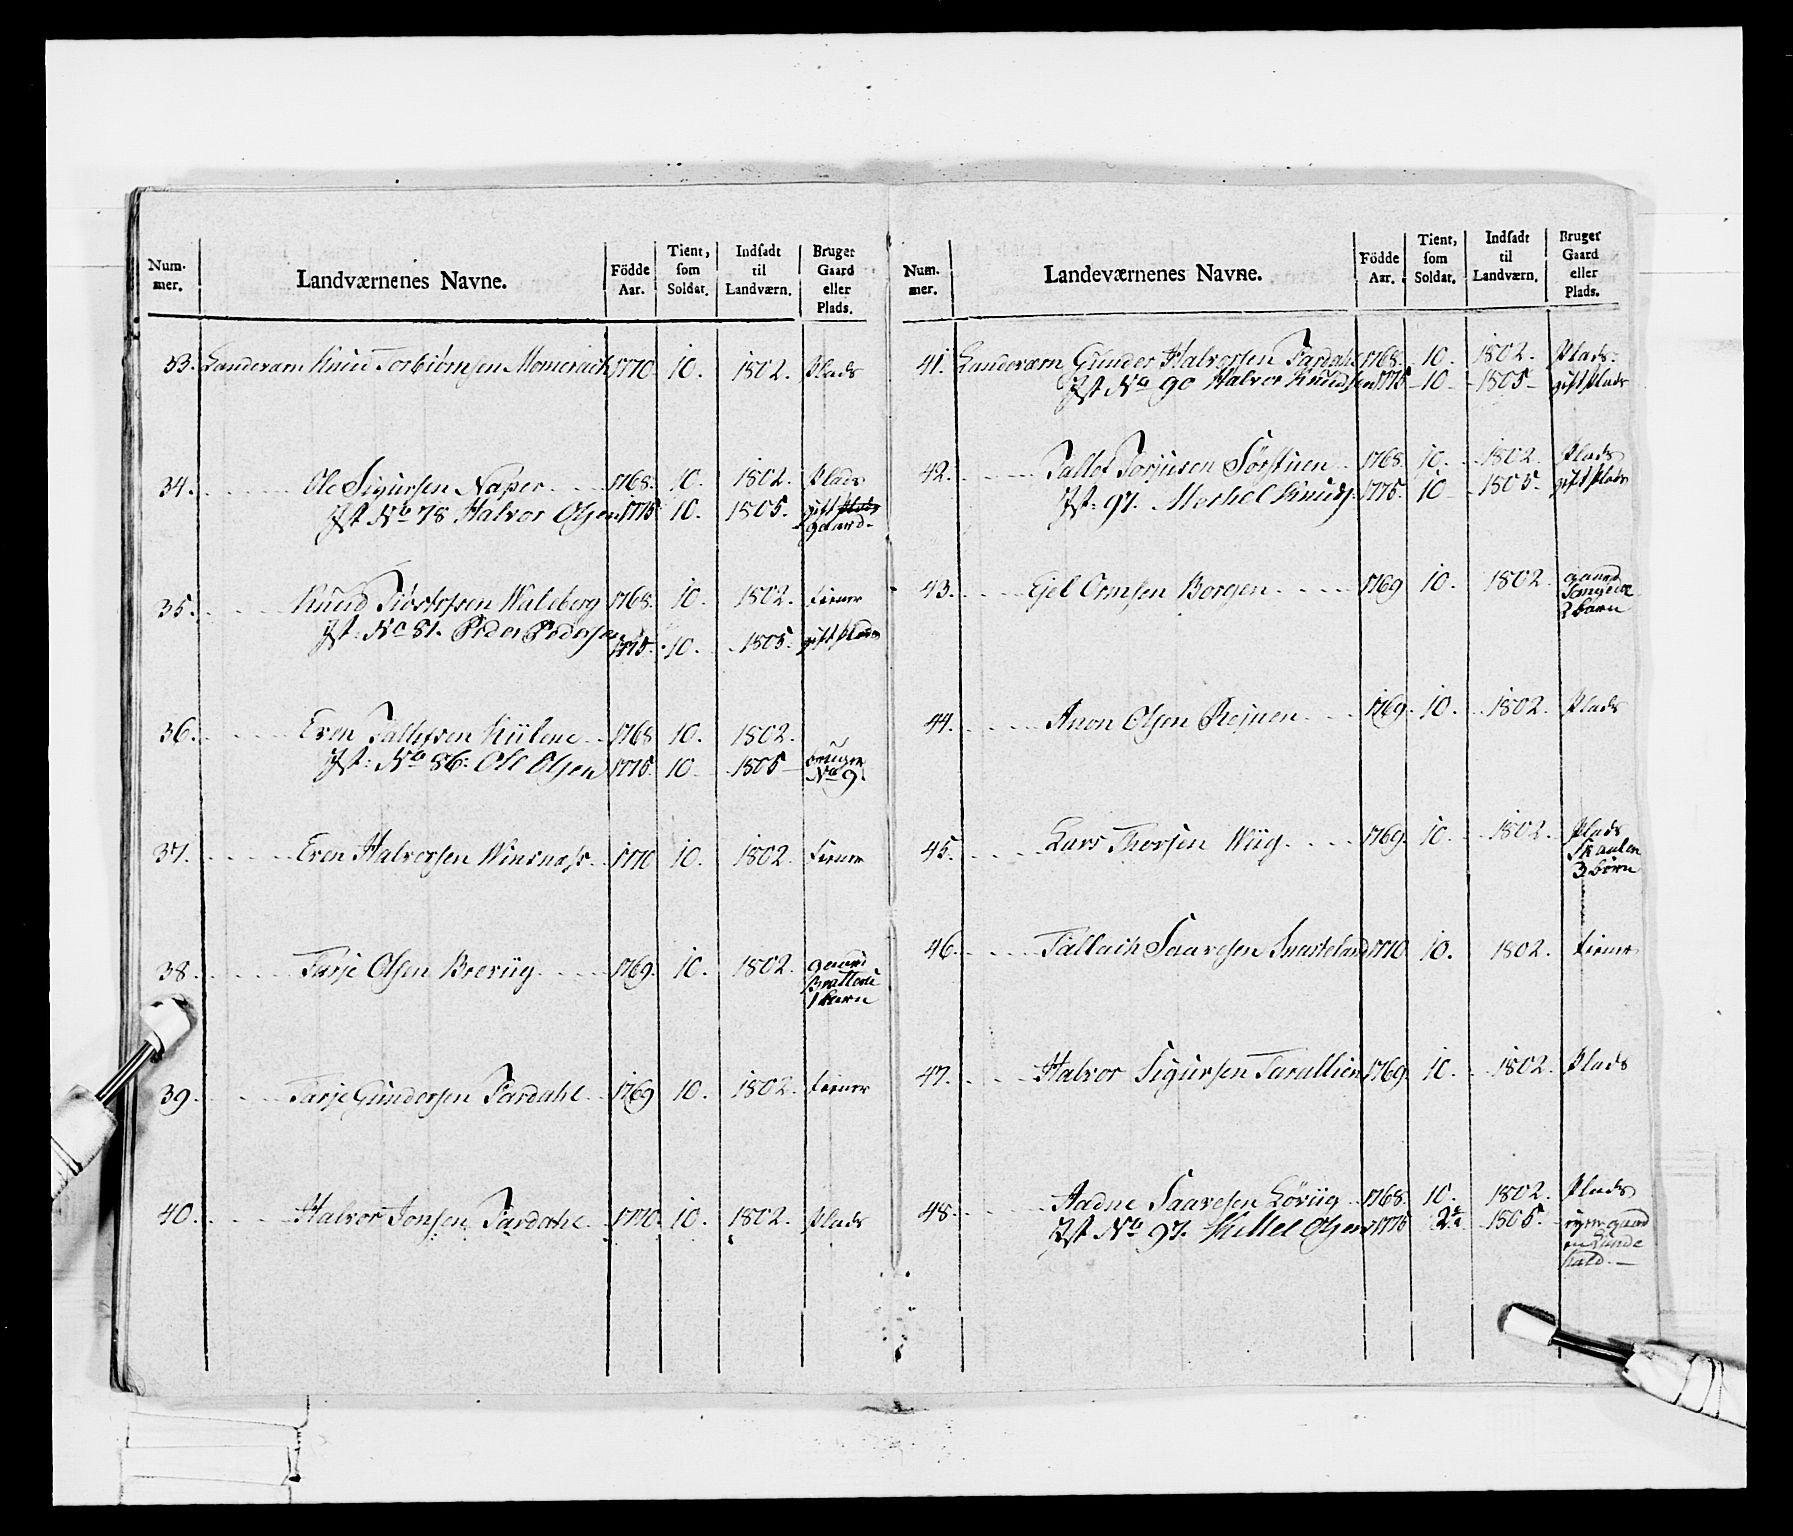 Num-mer. Landværnenes Navne. Födde Aar. Tient, som Soldat. Indsadt til Landværn. Bruger Gaard eller Plads.
33. Landværn Knud Torbiörnsen Momrack 1770 10. 1802. Plads
34. Ole Sigursen Naper 1768. 10. 1802. Plads
Ist No 78 Halvor Olsen 1775 10. 1805. gift plads
gaard
35. Knud Tiöstelsen Waleberg 1768. 10. 1802. tiener
Ist: No 81. Peder Pedersen 1775. 10. 1805. gift plads
36. Even Tallefsen Kiilene 1768 10. 1802.
Ist: No 86: Ole Olsen 1775. 10. 1805 bruger
No 9.
37. Even Halvorsen Winsnæss 1770 10. 1802. tiener
38. Tarje Olsen Breviig 1769. 10. 1802. gaard
Bratterie
1 barn
39. Tarje Gundersen Tardahl 1769 10. 1802. tiener
40. Halvor Jonsen Tardahl 1770. 10. 1802. Plads
Num-mer. Landeværnenes Navne. Födde Aar. Tient, som Soldat. Indsadt til Landværn. Bruger Gaard eller Plads.
41. Landværn Gunder Halvorsen Tardahl 1768. 10. 1802. Plads.
Ist No 90 Halvor Knudsen 1775 10. 1805 gift plads
42. Tallef Torjusen Sörstuen 1768. 10. 1802. Plads
Ist: 97. Knuds. 1775. 10 1805. gift plads
43. Ejel Ormsen Borgen 1769 10. 1802. gaard
2 barn
44. Anon Olsen Reimen 1769. 10. 1802. Plads
45. Lars Thorsen Wiig 1769. 10. 1802. Plads
3 börn
46. Tallach Saavesen Svarteland 1770. 10. 1802. tiener
47. Halvor Sigursen Taraldlien 1769. 10. 1802. Plads
48. Aadne Saavesen Löviig 1768. 10. 1802. Plads
Ist No 97. Kittel Olsen 1775 1805. gaard